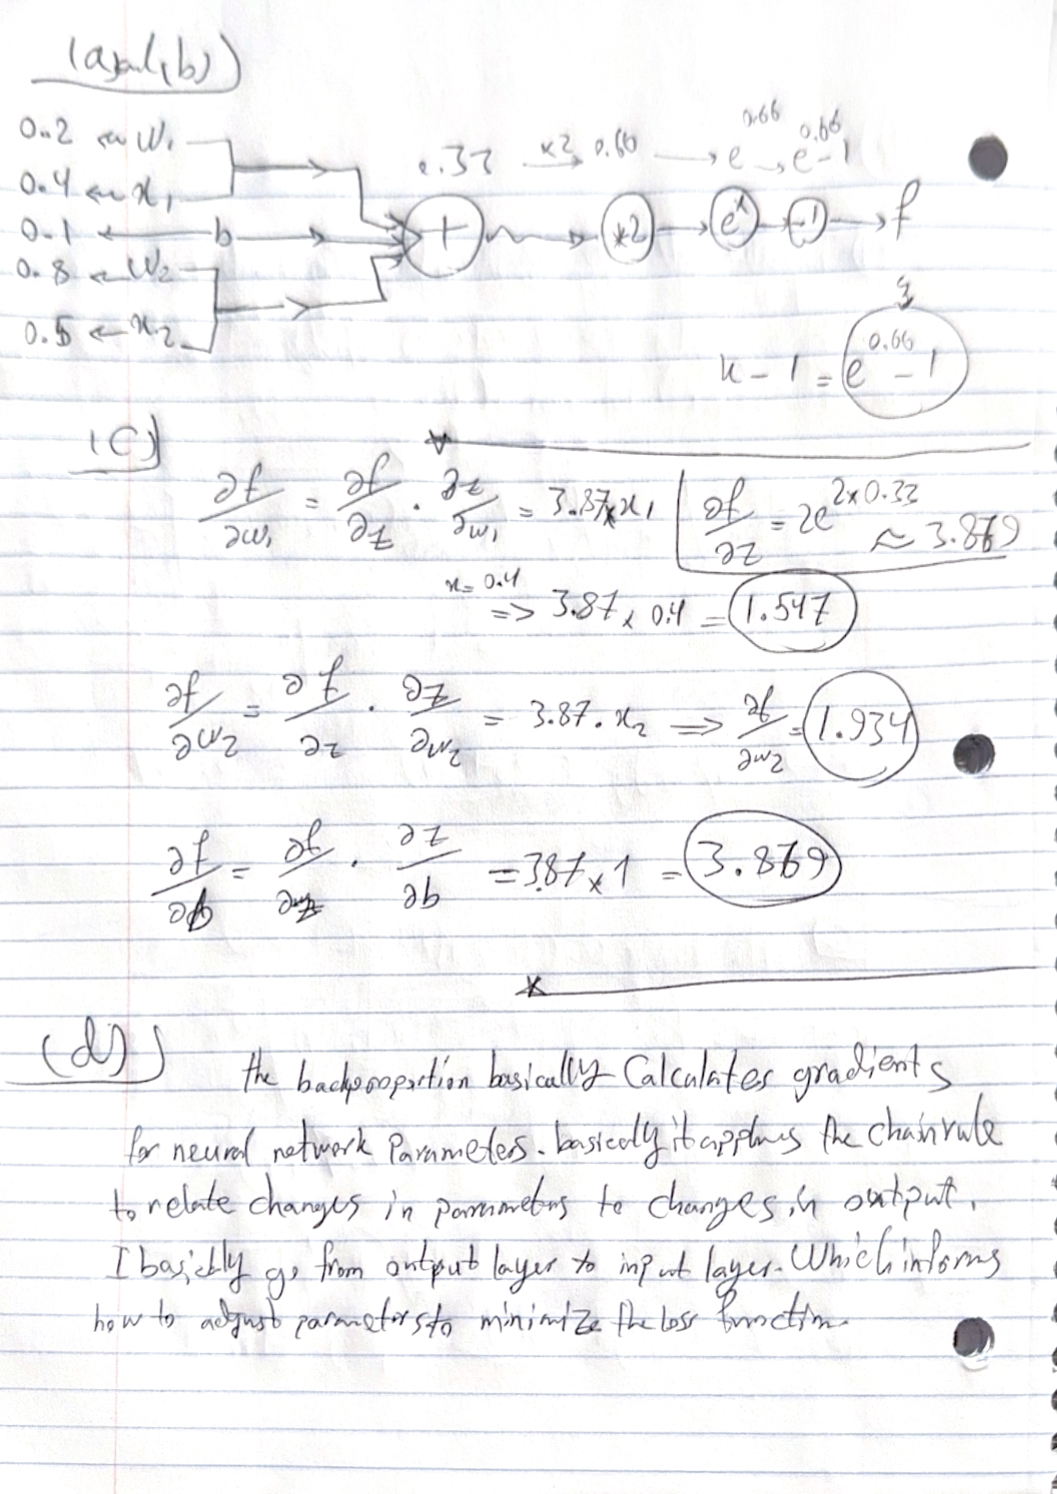 (a) and (b)
0.2 ← w₁
0.4 ← x₁
0.1 ← b
0.8 ← w₂
0.5 ← x₂
0.33 ×2→ 0.66 → e^0.66 → e^0.66 - 1
+ → *2 → e^x → -1 → f
x - 1 = e^0.66 - 1
(C)
∂f/∂w₁ = ∂f/∂z · ∂z/∂w₁ = 3.87 × x₁ | ∂f/∂z = 2e^2×0.33 ≈ 3.869
x = 0.4 => 3.87 × 0.4 = 1.547
∂f/∂w₂ = ∂f/∂z · ∂z/∂w₂ = 3.87 . x₂ => ∂f/∂w₂ = 1.934
∂f/∂b = ∂f/∂z · ∂z/∂b = 3.87 × 1 = 3.869
(d)
the backpropoprtion basically Calculates gradients
for neural network Parameters. basically it applies the chain rule
to relate changes in parameters to changes in output.
I basiclly go from output layer to input layer. Which informs
how to adjust parameters to minimize the loss function.